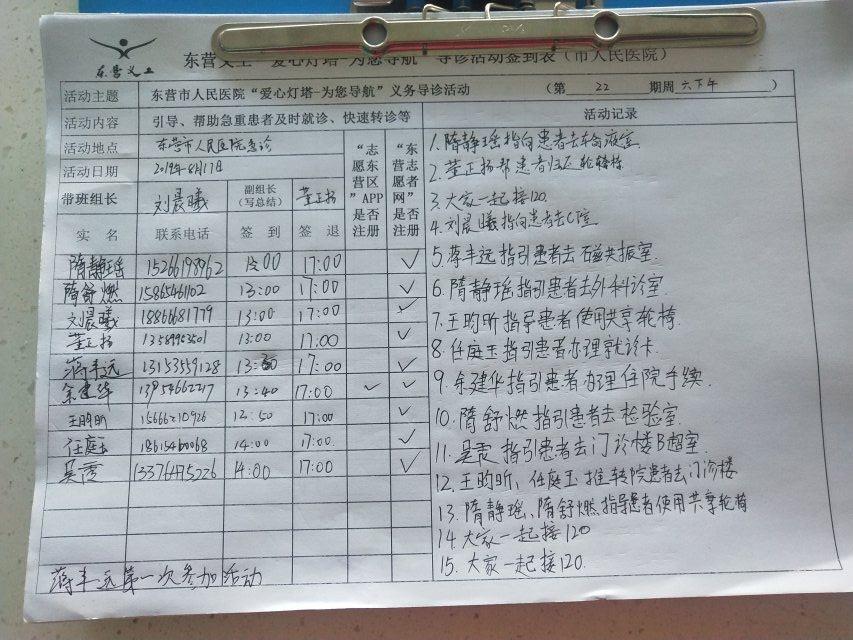 东营义工
东营义工“爱心灯塔-为您导航”导诊活动签到表（市人民医院）
活动主题 东营市人民医院“爱心灯塔-为您导航”义务导诊活动 （第 22 期周六下午 ）
活动内容 引导、帮助急重患者及时就诊、快速转诊等
活动地点 东营市人民医院急诊
活动日期 2019年8月17日
带班组长 刘晨曦 副组长（写总结） 董正扬
“志愿东营区”APP是否注册
“东营志愿者网”是否注册
实名 联系电话 签到 签退
隋静瑶 15266198962 13:00 17:00 ✓
隋舒燃 15865461102 13:00 17:00 ✓
刘晨曦 18866681779 13:00 17:00 ✓
董正扬 13589953501 13:00 17:00 ✓
蒋丰远 13153559128 13:30 17:00 ✓
余建华 13954662217 13:40 17:00 ✓ ✓
王昀昕 15666210926 12:50 17:00 ✓
任庭玉 18615460068 14:00 17:00 ✓
吴秀 13376475226 14:00 17:00 ✓
蒋丰远第一次参加活动
活动记录
1.隋静瑶指向患者去输液室
2.董正扬帮患者归还轮椅
3.大家一起接120.
4.刘晨曦指向患者去CT室
5.蒋丰远指引患者去磁共振室.
6.隋静瑶指引患者去外科诊室.
7.王昀昕指导患者使用共享轮椅.
8.任庭玉指引患者办理就诊卡.
9.余建华指引患者办理住院手续.
10.隋舒燃指引患者去检验室.
11.吴秀指引患者去门诊楼B超室.
12.王昀昕、任庭玉推转院患者去门诊楼
13.隋静瑶、隋舒燃指导患者使用共享轮椅
14.大家一起接120
15.大家一起接120.